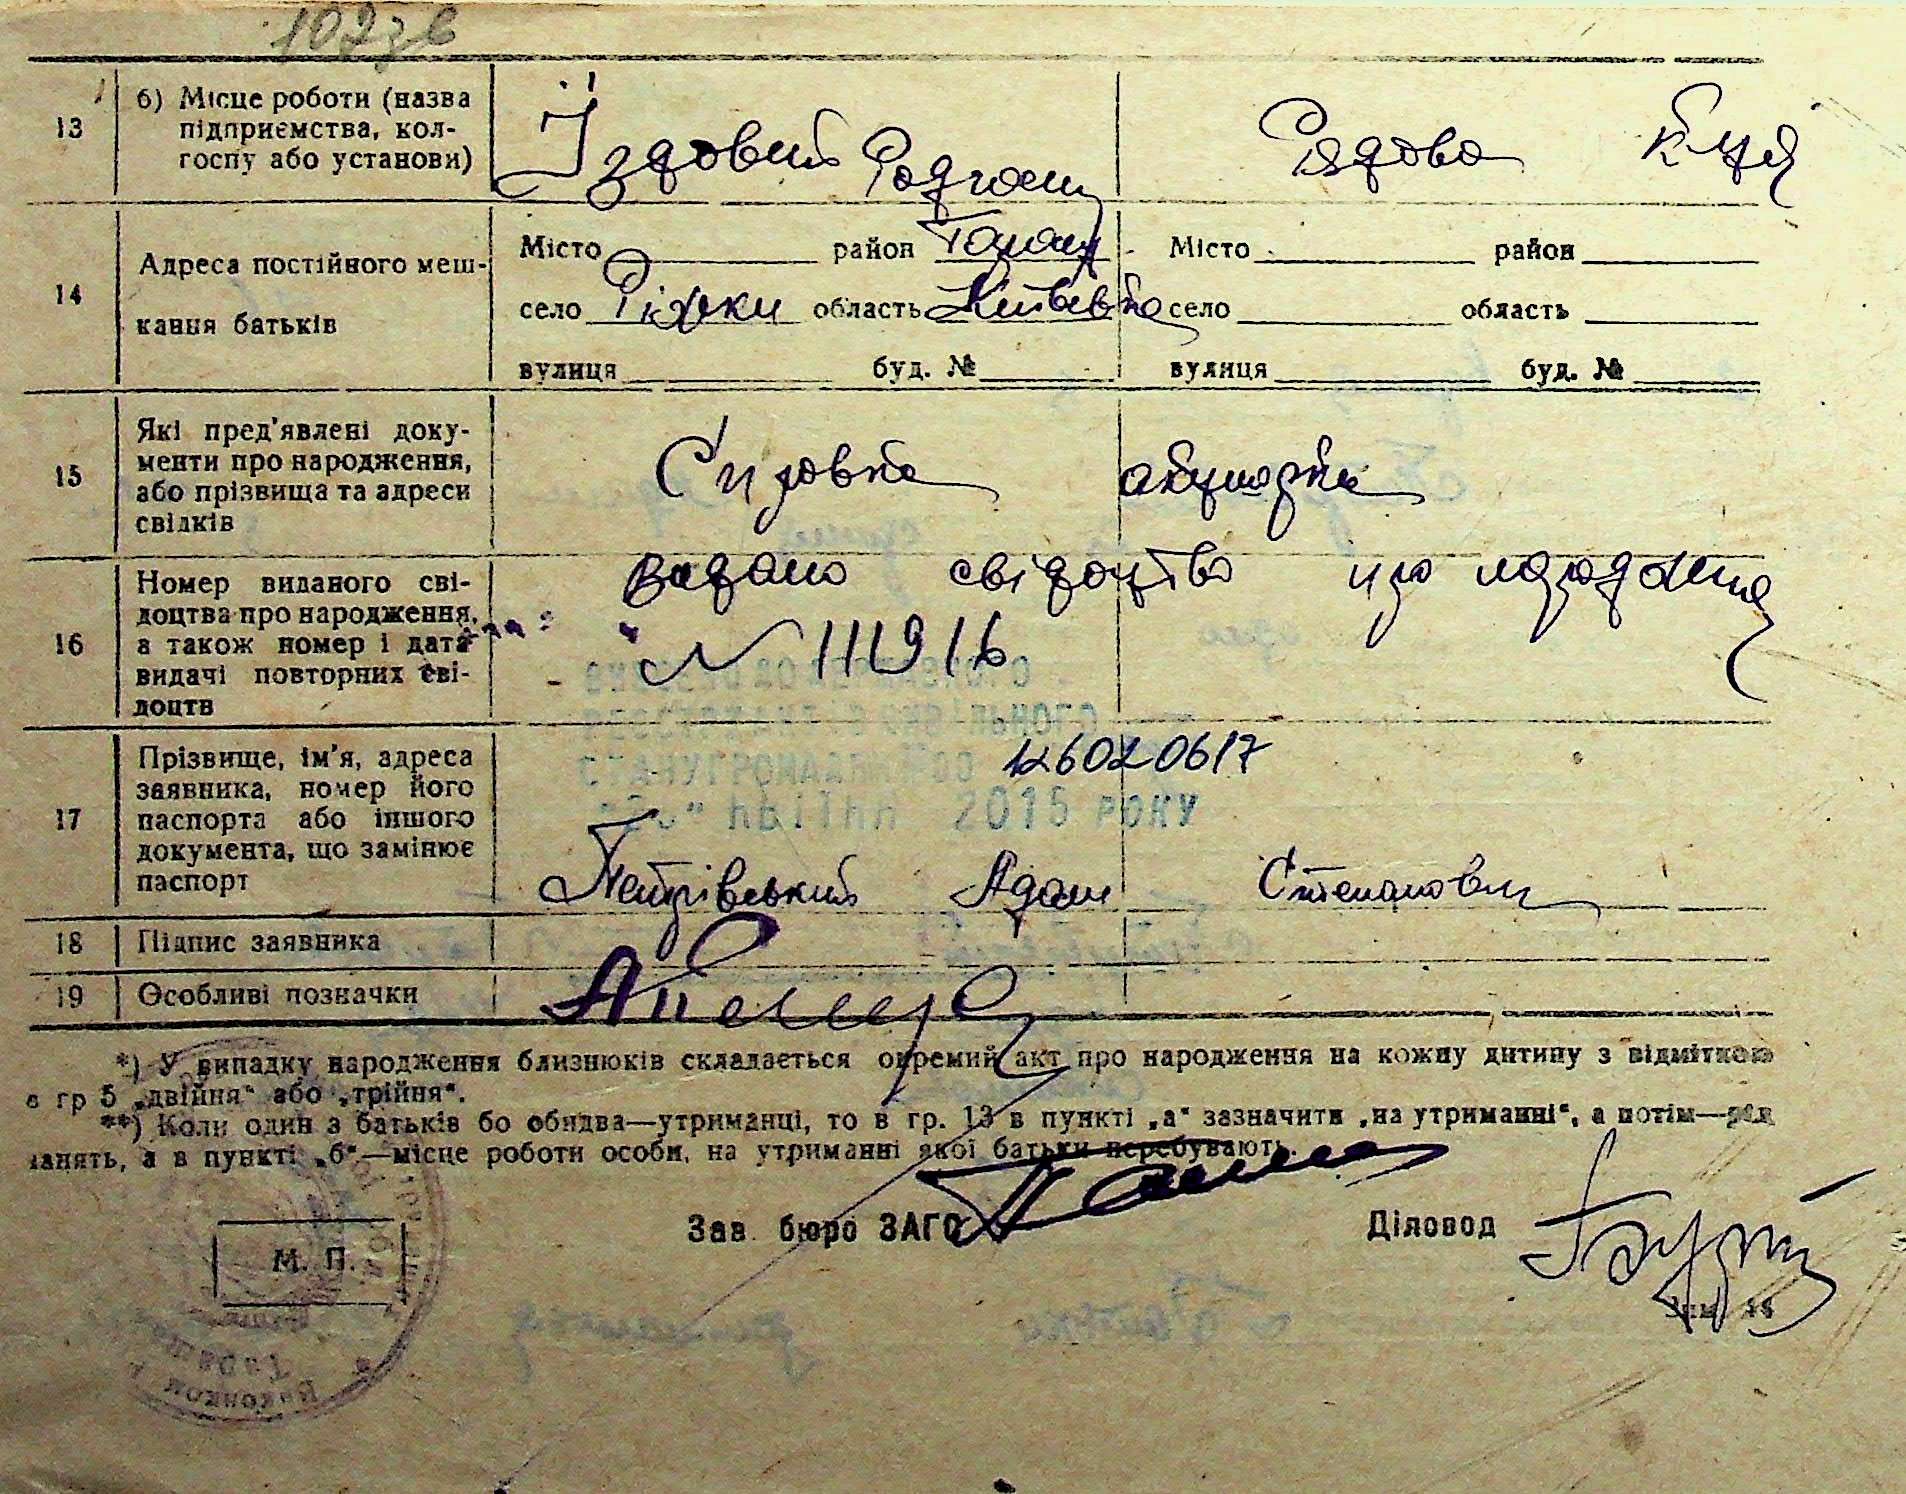 107зв
13
б) Місце роботи (назва
підприємства, кол-
госпу або установи)
Їздовий Радгосп
Рядова
14
Адреса постійного меш-
кання батьків
Місто район Місто район
село Ріжки область село область
вулиця буд. № вулиця буд. №
15
Які пред'явлені доку-
менти про народження,
або прізвища та адреси
свідків
Справка акушерки
16
Номер виданого сві-
доцтва про народження,
а також номер і дата
видачі повторних сві-
доцтв
видано свідоцтво про народження
N 111916
РЕЄСТРУ АКТІВ ЦИВІЛЬНОГО
СТАНУ ГРОМАДЯН
2015 РОКУ
17
Прізвище, ім'я, адреса
заявника, номер його
паспорта або іншого
документа, що замінює
паспорт
Петрівський Адам Степанович
18
Підпис заявника
19
Особливі позначки
*) У випадку народження близнюків складається окремий акт про народження на кожну дитину з відміткою
в гр 5 „двійня“ або „трійня“.
**) Коли один з батьків бо обидва—утриманці, то в гр. 13 в пункті „а“ зазначити „на утриманні“, а потім—рід
занять, а в пункті „б“—місце роботи особи, на утриманні якої батьки перебувають.
М. П.
Зав. бюро ЗАГС
Діловод